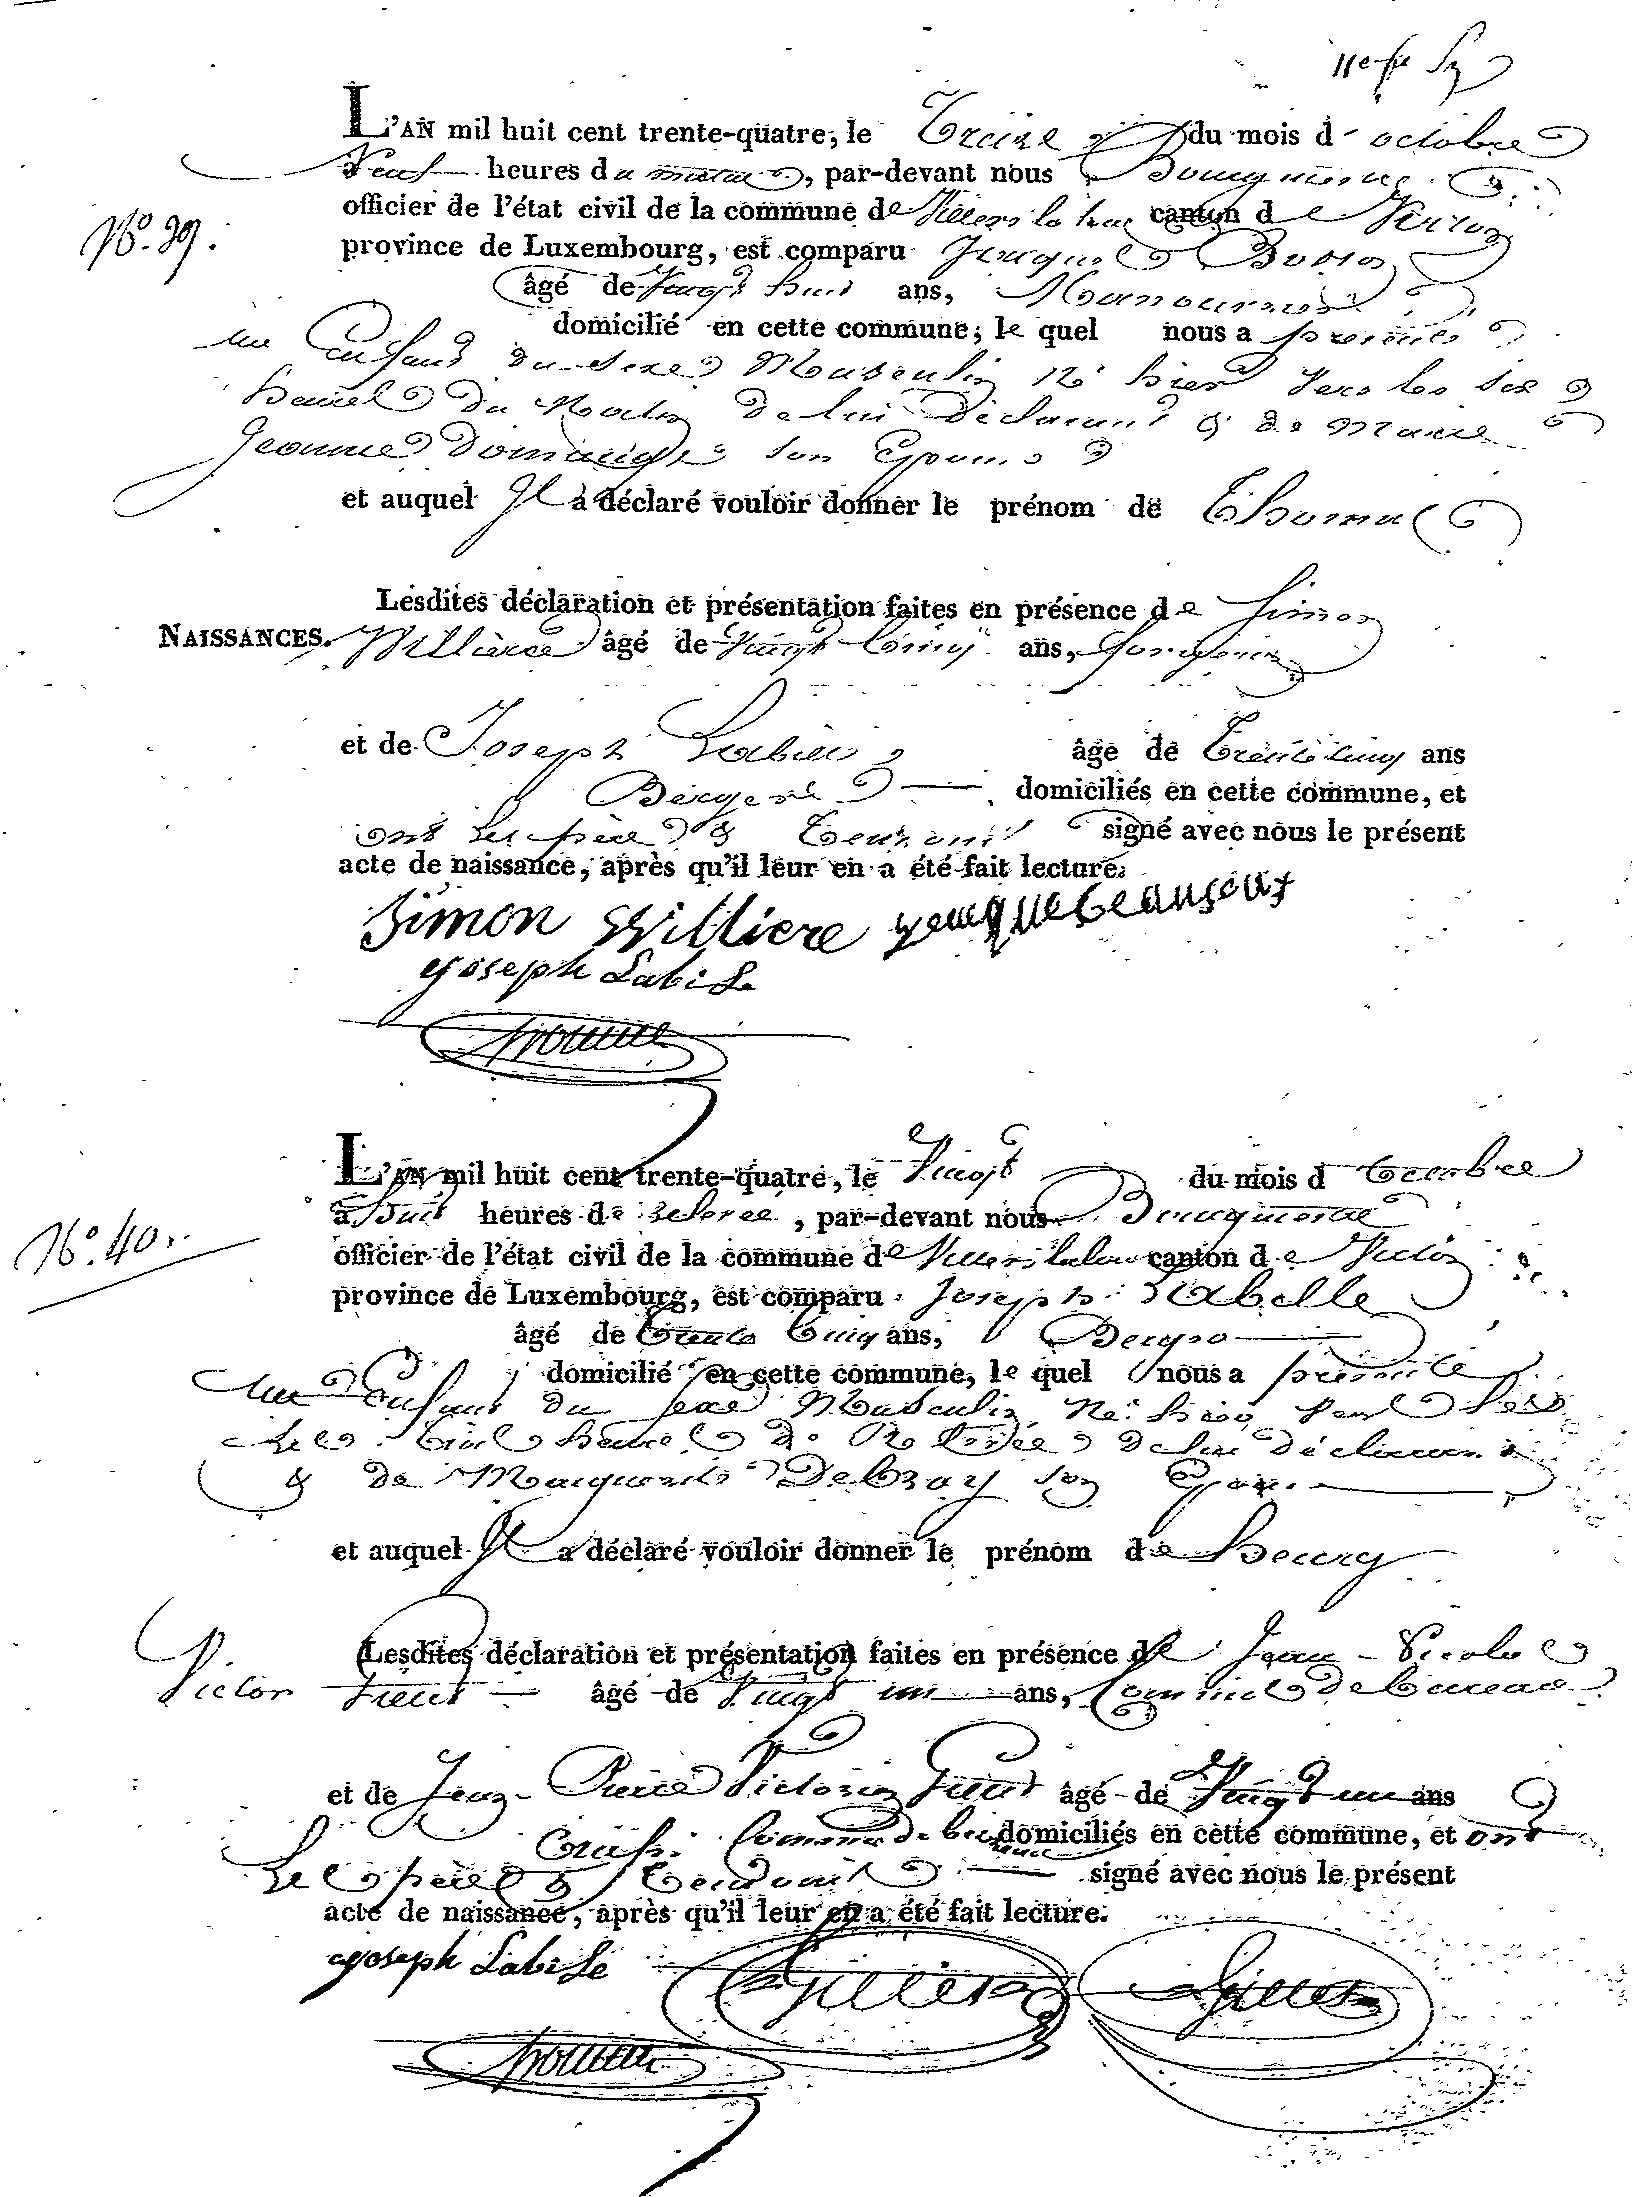 11e f.e
L'AN mil huit cent trente-quatre, le Treize du mois d' octobre
Neuf heures du matin, par-devant nous Bourgmestre
officier de l'état civil de la commune de Villers la loue canton de Virton
province de Luxembourg, est comparu Jacques
N.o 39.
âgé de Vingt huit ans, Manouvrier
domicilié en cette commune; le quel nous a présenté
un Enfant du sexe Masculin né hier vers les six
heures du Matin de lui déclarant & de Marie
Jeanne son Epouse
et auquel Il a déclaré vouloir donner le prénom de Thomas
Lesdites déclaration et présentation faites en présence de Simon
NAISSANCES. Willière âgé de Vingt Cinq ans,
et de Joseph Labile âge de Trente Cinq ans
Berger domiciliés en cette commune, et
ont les père & temoins signé avec nous le présent
acte de naissance, après qu'il leur en a été fait lecture.
Simon Williere
Joseph Labile
L'AN mil huit cent trente-quatre, le Vingt du mois d octobre
à huit heures de relevee, par-devant nous Bourgmestre
N.o 40.
officier de l'état civil de la commune de Villers la loue canton de Virton
province de Luxembourg, est comparu Joseph Labelle
âgé de Trente Cinq ans, Berger
domicilié en cette commune, le quel nous a présenté
un Enfant du sexe Masculin, Né hier vers les
heures de Relevée de lui déclarant
& de Marguerite Debray son Epouse
et auquel Il a déclaré vouloir donner le prénom de henry
Lesdites déclaration et présentation faites en présence de Jean-Nicolas
Victor Gillet âgé de Vingt un ans, Commis de bureau
et de Jean-Pierre Victorin Gillet âgé de Vingt un ans
Aussi Commis de bureau domiciliés en cette commune, et ont
Les père & temoins signé avec nous le présent
acte de naissance, après qu'il leur en a été fait lecture.
Joseph Labile Gillet Gillet